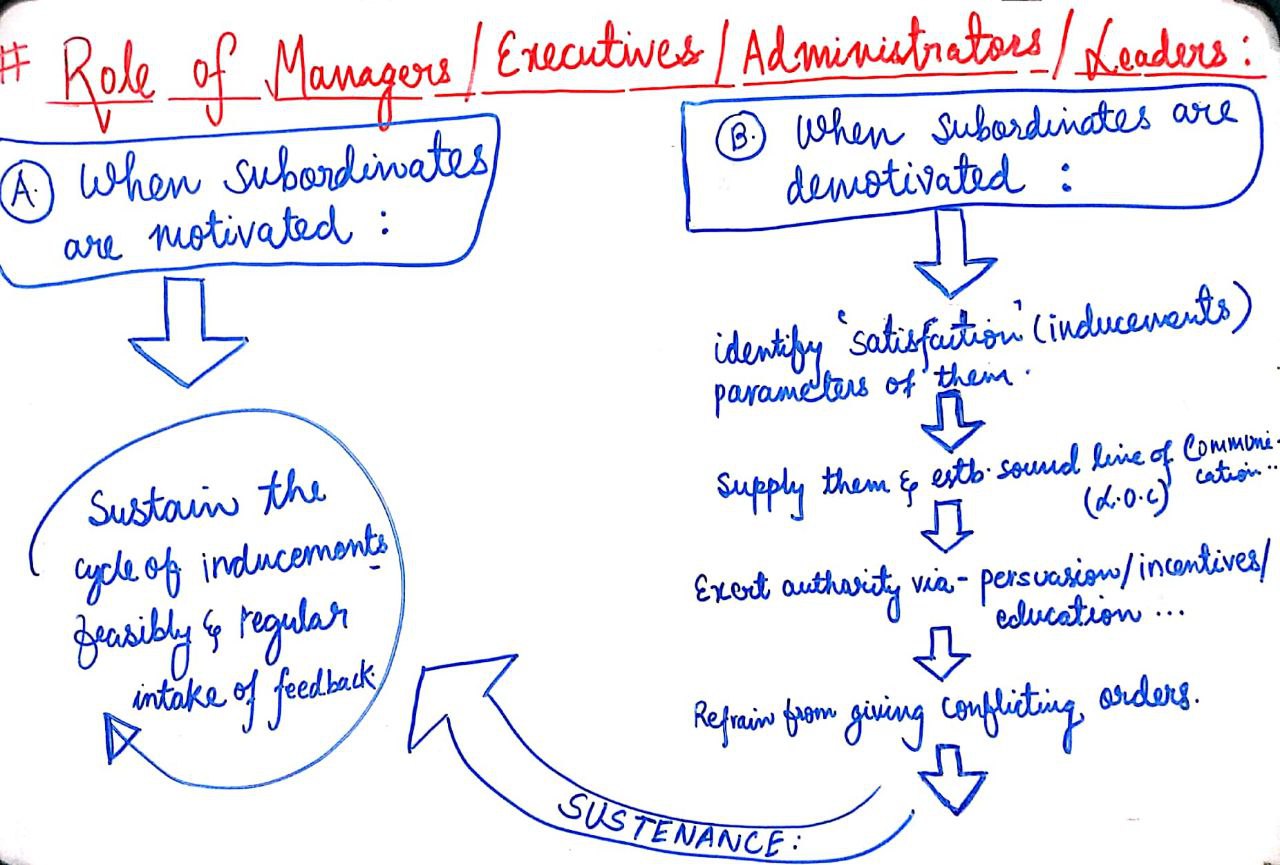 # Role of Managers/Executives/Administrators/Leaders:
A. When subordinates
are motivated :
Sustain the
cycle of inducements
feasibly & regular
intake of feedback.
B. When subordinates are
demotivated :
identify 'satisfaction' (inducements)
parameters of them.
Supply them & estb. sound line of Communi-
cation..
(L.O.C)
Exert authority via - persuasion/incentives/
education ...
Refrain from giving conflicting orders.
SUSTENANCE: